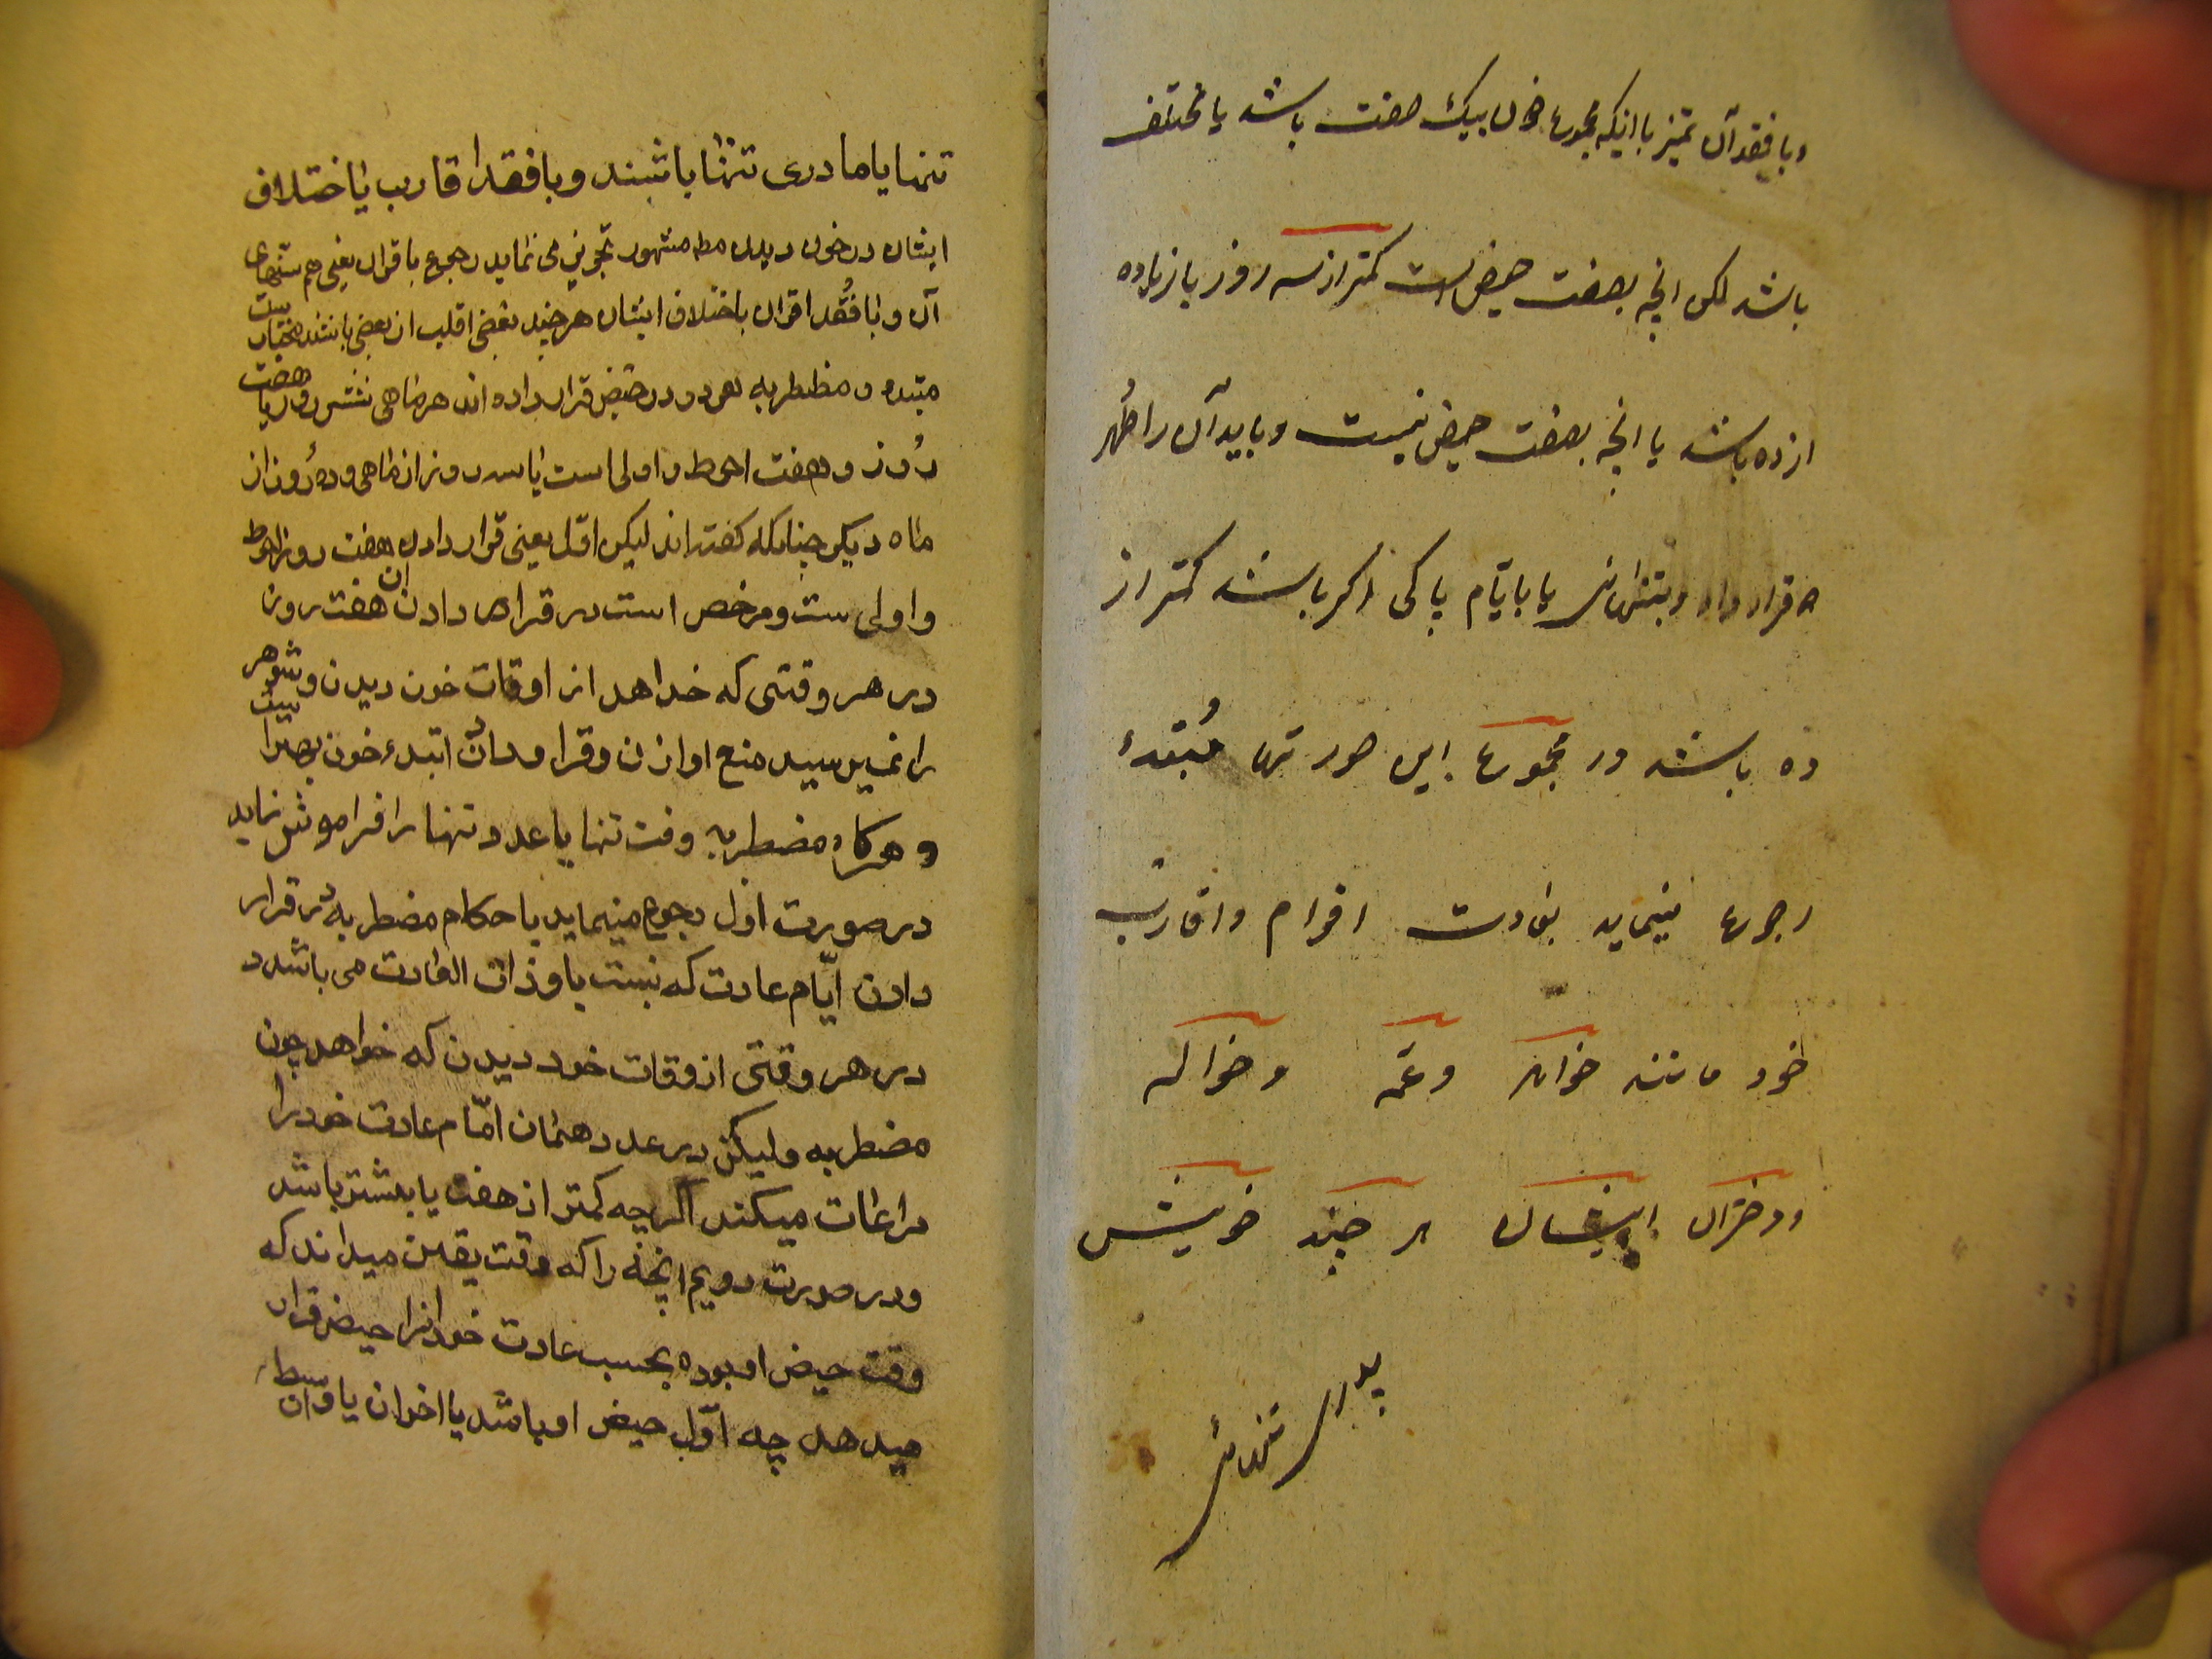 و با فقد آن تمیز با اینکه مجموع خون بیک صفت باشد یا مختلف
باشد لکن انچه بصفت حیض است کمتر از سه روز یا زیاده
از ده باشد یا انچه بصفت حیض نیست و باید آن را طُهر
قرار داد و بتنهائی یا با ایّام پاکی اکر باشد کمتر از
ده باشد در مجموع این صورتها مُبتدء
رجوع مینماید بعادت اقوام و اقارب
خود مانند خواهر و عمّه و خواله
و دختران ایشان هر چند خویش
پدری تنهائی
تنها یا مادری تنها باشند و با فقد اقارب یا اختلاف
ایشان در خون دیدن مط مشهور تجویز می نماید رجوع باقران یعنی هم سنهای
آن و با فُقد اقران یا اختلاف ایشان هر چند بعضی اقلب از بعضی باشند
مبتدء و مظطربه هر دو در حیض قرار داده اند هر ماهی شش روز یا هفت
رُوز و هفت احوط و اولی است یا سه روز از ماهی و دهُ روز از
ماه دیکر چنانکه کفته اند لیکن اوّل یعنی قرار دادن هفت روز احوط
و اولی ست و مرخص است در قرار دادن ان هفت روز
در هر وقتی که خداهد از اوقات خون دیدن و شوهر
را نمیرسید منع او ازن و قرار دادن ابتدء خون
و هرکاه مضطربه وقت تنها یا عدد تنها را فراموش نماید
در صورت اول رجوع مینماید باحکام مضطربه در قرار
دادن ایّام عادت که نبست باو ذات العادت می باشد د
در هر وقتی از وقات خود دیدن که خواهد چون
مضطربه ولیکن در عدد همان امّام عادت خود را
مراعات میکند اکرچه کمتر از هفت یا بیشتر باشد
و در صورت دویم انچه را که وقت یقین میداند که
وقت حیض او بوده بحسب عادت خود انرا حیض قرار
میدهد چه اوّل حیض او باشد یا اخران یا وسط ان